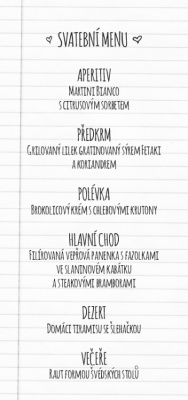 SVATEBNÍ MENU
APERITIV
MARTINI BIANCO
S CITRUSOVÝM SORBETEM
PŘEDKRM
GRILOVANÝ LILEK GRATINOVANÝ SÝREM FETAKI
A KORIANDREM
POLÉVKA
BROKOLICOVÝ KRÉM S CHLEBOVÝMI KRUTONY
HLAVNÍ CHOD
FILÍROVANÁ VEPŘOVÁ PANENKA S FAZOLKAMI
VE SLANINOVÉM KABÁTKU
A STEAKOVÝMI BRAMBORAMI
DEZERT
DOMÁCÍ TIRAMISU SE ŠLEHAČKOU
VEČEŘE
RAUT FORMOU ŠVÉDSKÝCH STOLŮ